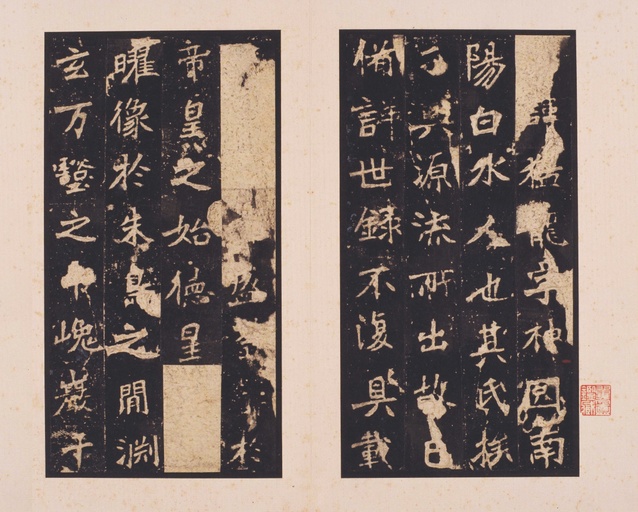 諱猛龍字神冏南
陽白水人也其氏族
興源流所出故已
備詳世録不復具載
於
帝皇之始德星
曜像於朱鳥之閒淵
玄万壑之中巉巖千